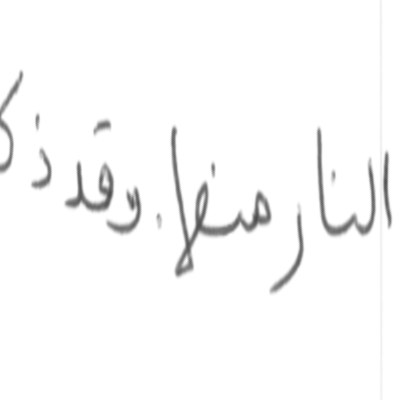 النار منها. وقد ذك